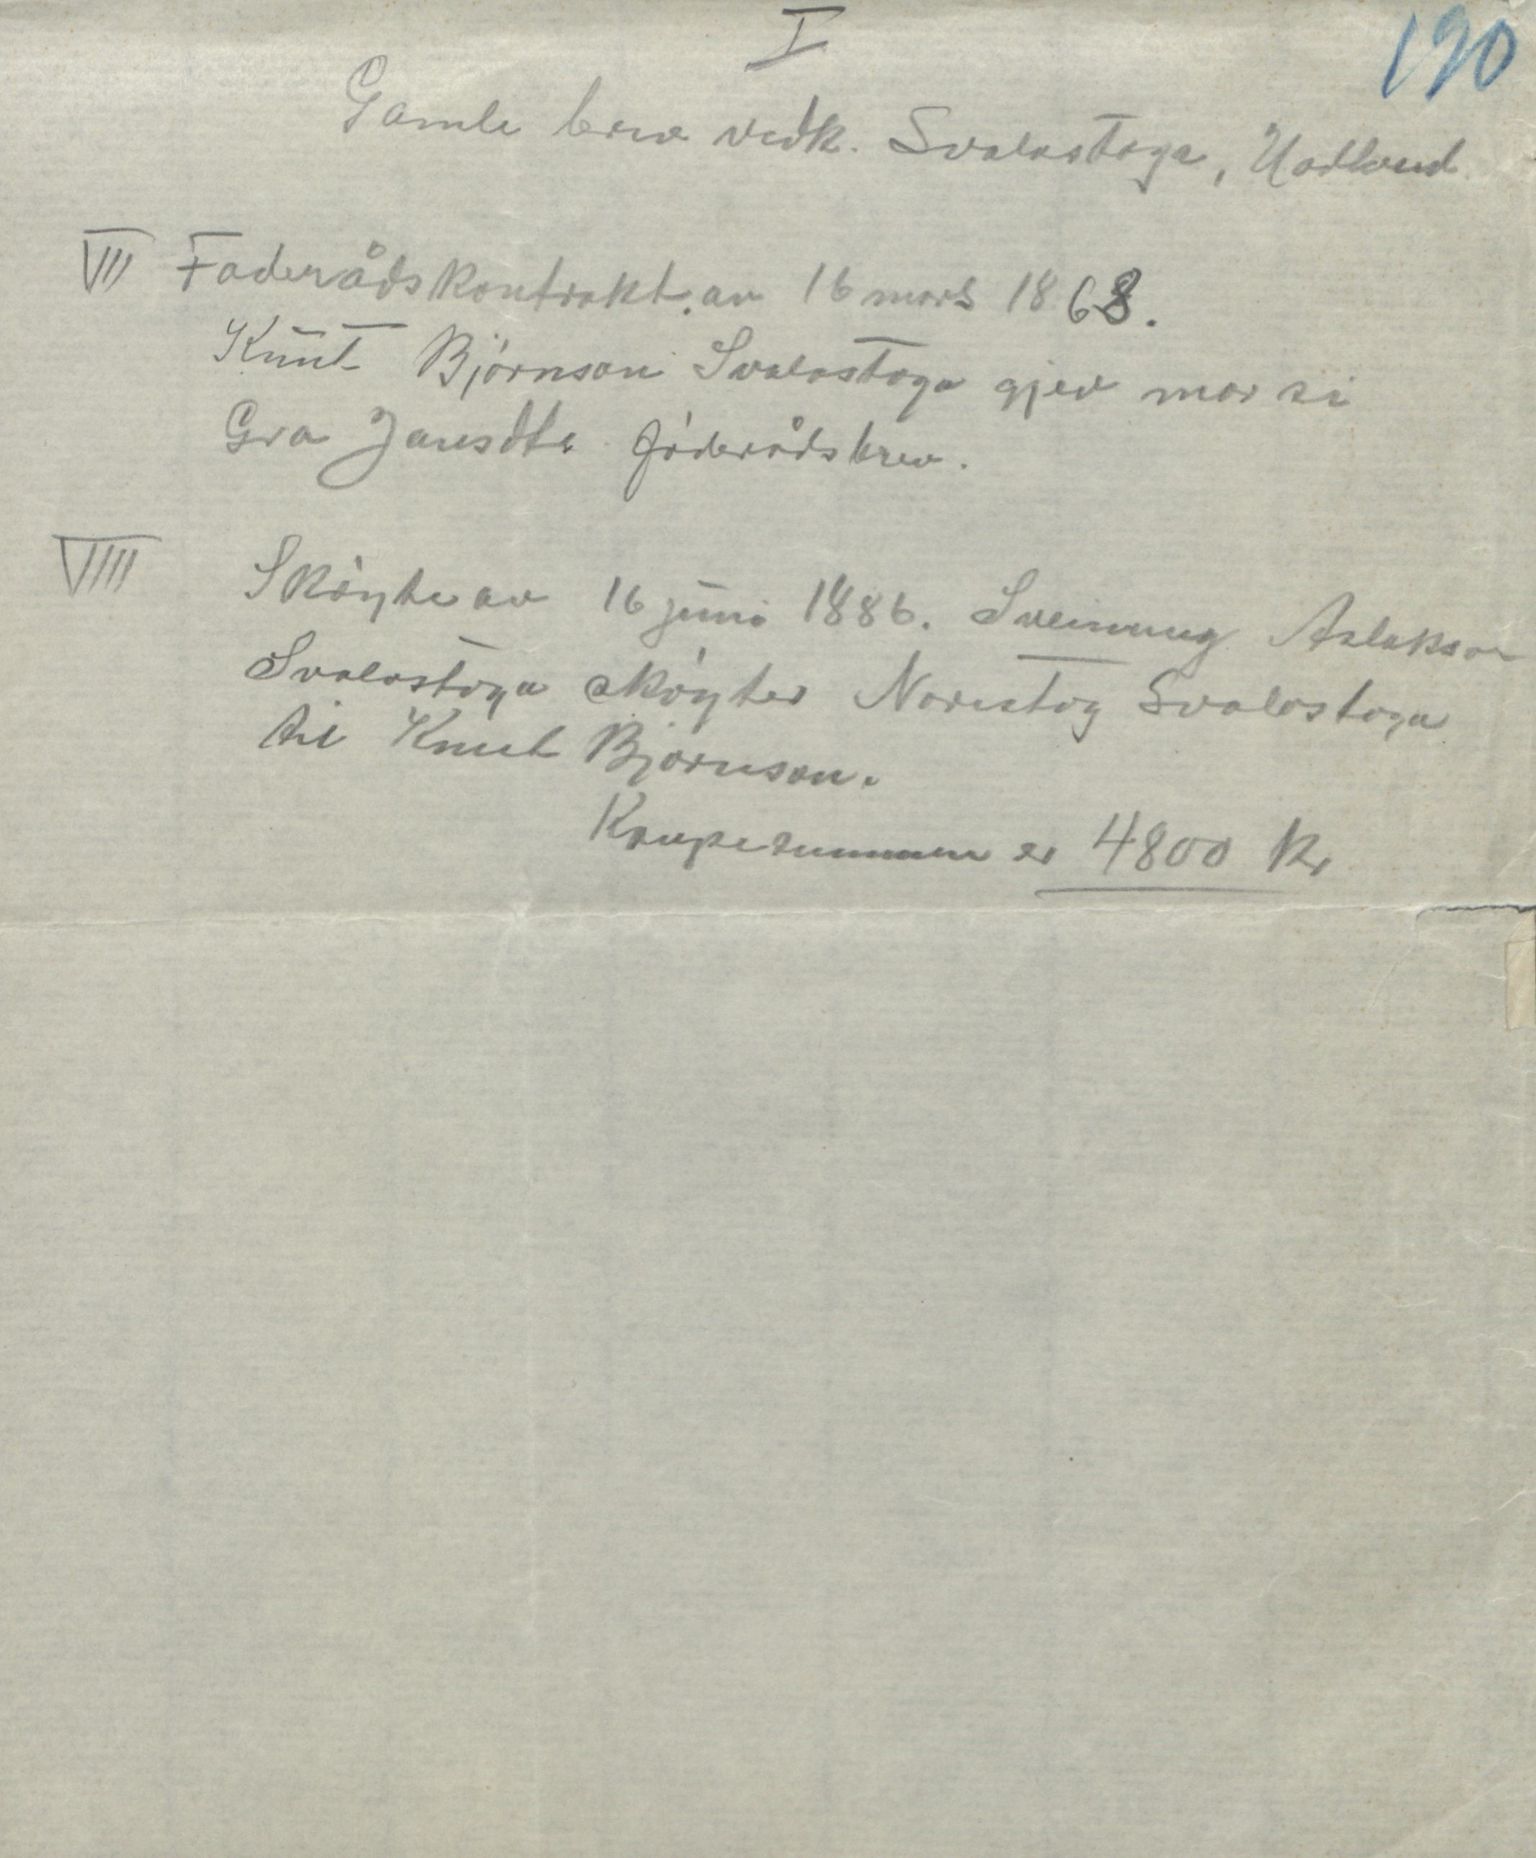 I
190
Gamle brev vedk. Svalastoga, Hadland
VII Föderådskontrakt av 16 mars 1868.
Knut Björnson Svalastoga gjev mor si
Gro Jansdtr föderådsbrev.
VIIII Sköyte av 16 juni 1886. Sveinung Aslakson
Svalastoga sköyter Norestog Svalastoga
til Knut Björnson.
Kaupesummen er 4800 kr